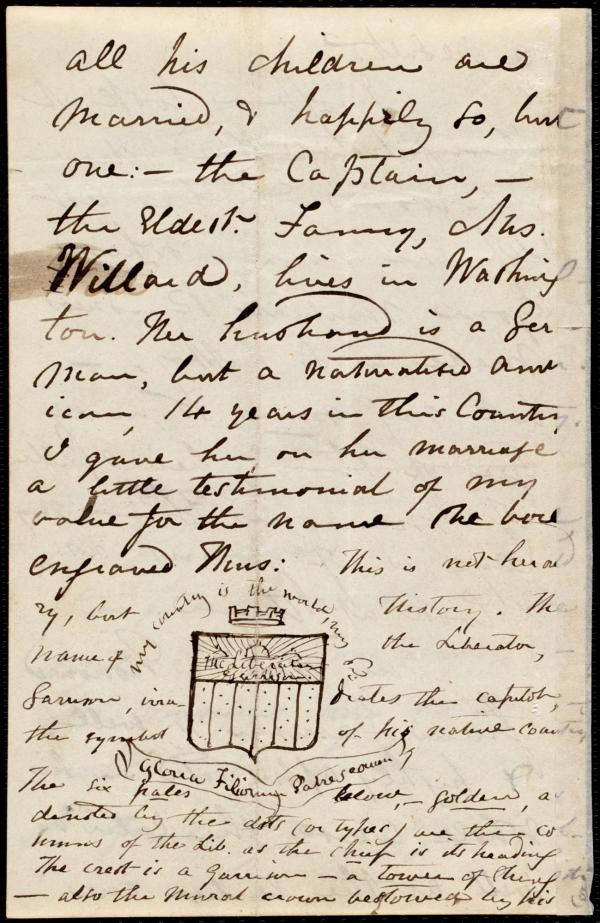 all his children are
married, & happily so, but
one:— the Captain,—
the Eldest. Fanny, Mrs.
Willard, lives in Washing
ton. Her husband is a Ger
man, but a naturalised Amer
ican, 14 years in this Country.
I gave her, on her marriage
a little testimonial of my
value for the name she bore
engraved thus: This is not heral
ry, but History. The
my country is the world, my
name of the Liberator,
The Liberator
Garrison
Garrison, irra- diates the capitol,
the symbol of his native country
Gloria Filiorum Patres eorum
The six pales below,— golden, as
denoted by the dots (or types) are the co
lumns of the Lib. as the chief is its heading
The crest is a Garrison — a tower of Streng
— also the Mural crown bestowed by his